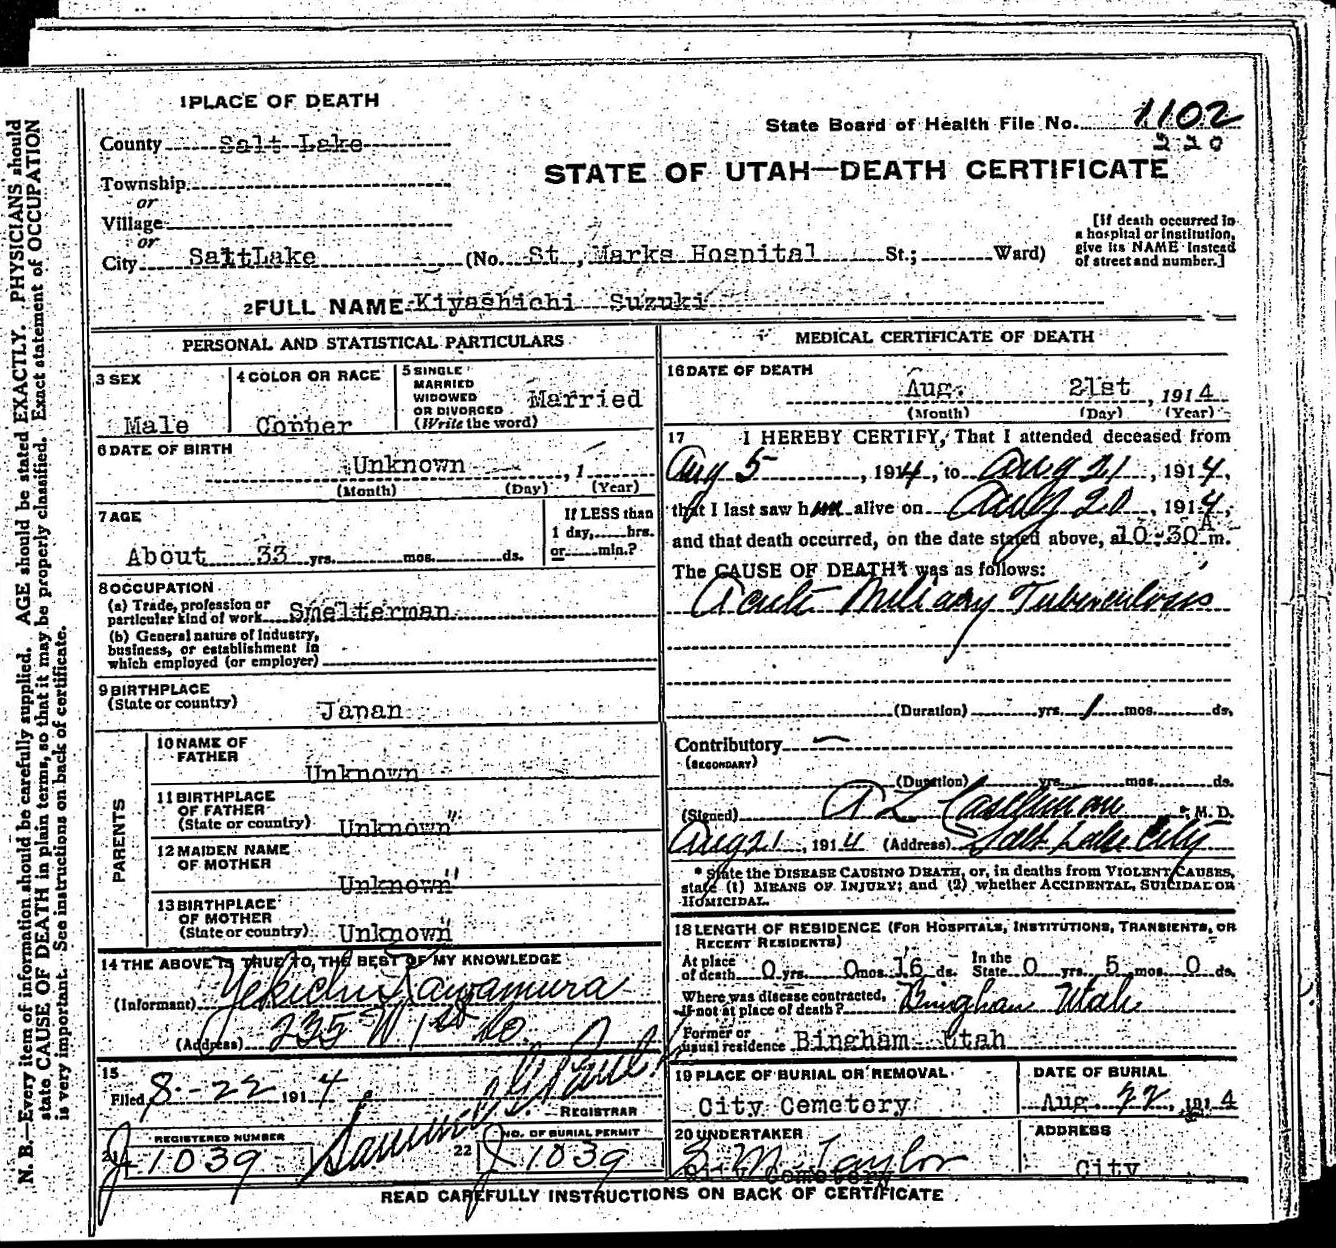 1 PLACE OF DEATH
State Board of Health File No. 1102
County Salt Lake
220
STATE OF UTAH—DEATH CERTIFICATE
Township
or
Village
or
City SaltLake (No. St., Marks Hospital St.; Ward)
[If death occurred in a hospital or institution, give its NAME instead of street and number.]
2 FULL NAME Kiyashichi Suzuki
PERSONAL AND STATISTICAL PARTICULARS
3 SEX
Male
4 COLOR OR RACE
Copper
5 SINGLE
MARRIED
WIDOWED
OR DIVORCED
(Write the word)
Married
6 DATE OF BIRTH
Unknown , 1
(Month) (Day) (Year)
7 AGE
About 33 yrs. mos. ds.
If LESS than
1 day, hrs.
or min.?
8 OCCUPATION
(a) Trade, profession or
particular kind of work Smelterman
(b) General nature of industry,
business, or establishment in
which employed (or employer)
9 BIRTHPLACE
(State or country)
Japan
PARENTS
10 NAME OF
FATHER
Unknown
11 BIRTHPLACE
OF FATHER
(State or country) Unknown"
12 MAIDEN NAME
OF MOTHER
Unknown"
13 BIRTHPLACE
OF MOTHER
(State or country) Unknown"
14 THE ABOVE IS TRUE TO THE BEST OF MY KNOWLEDGE
(Informant) Yekichi Kawamura
(Address) 235 W 1st So.
15
Filed 8-22 1914
REGISTRAR
REGISTERED NUMBER
21 J 1039
22 NO. OF BURIAL PERMIT
J 1039
MEDICAL CERTIFICATE OF DEATH
16 DATE OF DEATH
Aug. 21st , 1914
(Month) (Day) (Year)
17 I HEREBY CERTIFY, That I attended deceased from
Aug 5 , 1914, to Aug 21 , 1914,
that I last saw him alive on Aug 20 , 1914,
and that death occurred, on the date stated above, at 10-30 A m.
The CAUSE OF DEATH* was as follows:
Acute Miliary Tuberculosis
(Duration) yrs. 1 mos. ds.
Contributory —
(SECONDARY)
(Duration) yrs. mos. ds.
(Signed) A L Castleman , M. D.
Aug 21 , 1914 (Address) Salt Lake City
* State the DISEASE CAUSING DEATH, or, in deaths from VIOLENT CAUSES,
state (1) MEANS OF INJURY; and (2) whether ACCIDENTAL, SUICIDAL OR
HOMICIDAL.
18 LENGTH OF RESIDENCE (FOR HOSPITALS, INSTITUTIONS, TRANSIENTS, OR
RECENT RESIDENTS)
At place
of death 0 yrs. 0 mos. 16 ds. In the
State 0 yrs 5 mos. 0 ds.
Where was disease contracted,
if not at place of death? Bingham Utah
Former or
usual residence Bingham Utah
19 PLACE OF BURIAL OR REMOVAL
City Cemetery
DATE OF BURIAL
Aug 22, 1914
20 UNDERTAKER
S. M. Taylor
Cemetery
ADDRESS
City
READ CAREFULLY INSTRUCTIONS ON BACK OF CERTIFICATE
N. B.—Every item of information should be carefully supplied. AGE should be stated EXACTLY. PHYSICIANS should
state CAUSE OF DEATH in plain terms, so that it may be properly classified. Exact statement of OCCUPATION
is very important. See instructions on back of certificate.